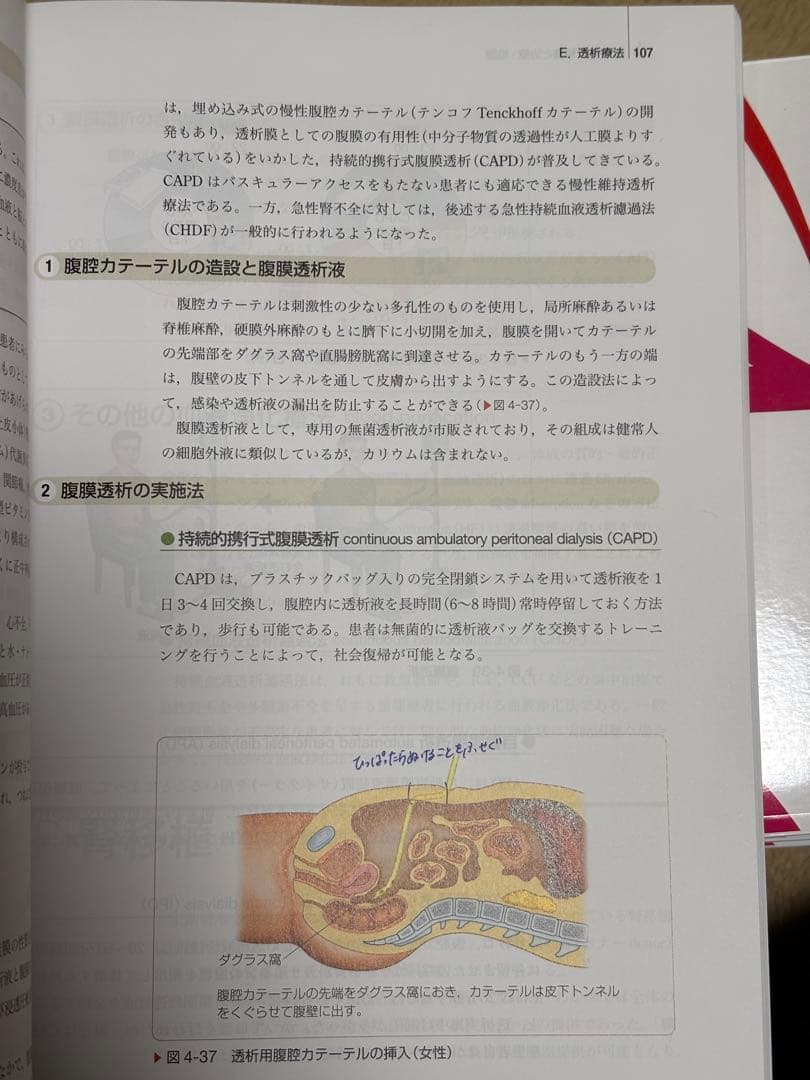 E. 透析療法 107
は，埋め込み式の慢性腹腔カテーテル(テンコフ Tenckhoff カテーテル)の開
発もあり，透析膜としての腹膜の有用性(中分子物質の透過性が人工膜よりす
ぐれている)をいかした，持続的携行式腹膜透析(CAPD)が普及してきている。
CAPD はバスキュラーアクセスをもたない患者にも適応できる慢性維持透析
療法である。一方，急性腎不全に対しては，後述する急性持続血液透析濾過法
(CHDF)が一般的に行われるようになった。
1 腹腔カテーテルの造設と腹膜透析液
腹腔カテーテルは刺激性の少ない多孔性のものを使用し，局所麻酔あるいは
脊椎麻酔，硬膜外麻酔のもとに臍下に小切開を加え，腹膜を開いてカテーテル
の先端部をダグラス窩や直腸膀胱窩に到達させる。カテーテルのもう一方の端
は，腹壁の皮下トンネルを通して皮膚から出すようにする。この造設法によっ
て，感染や透析液の漏出を防止することができる(▶図 4-37)。
腹膜透析液として，専用の無菌透析液が市販されており，その組成は健常人
の細胞外液に類似しているが，カリウムは含まれない。
2 腹膜透析の実施法
●持続的携行式腹膜透析 continuous ambulatory peritoneal dialysis (CAPD)
CAPD は，プラスチックバッグ入りの完全閉鎖システムを用いて透析液を 1
日 3〜4 回交換し，腹腔内に透析液を長時間(6〜8 時間)常時停留しておく方法
であり，歩行も可能である。患者は無菌的に透析液バッグを交換するトレーニ
ングを行うことによって，社会復帰が可能となる。
ひっぱったらぬけることをふせぐ
ダグラス窩
腹腔カテーテルの先端をダグラス窩におき，カテーテルは皮下トンネル
をくぐらせて腹壁に出す。
▶図 4-37 透析用腹腔カテーテルの挿入(女性)